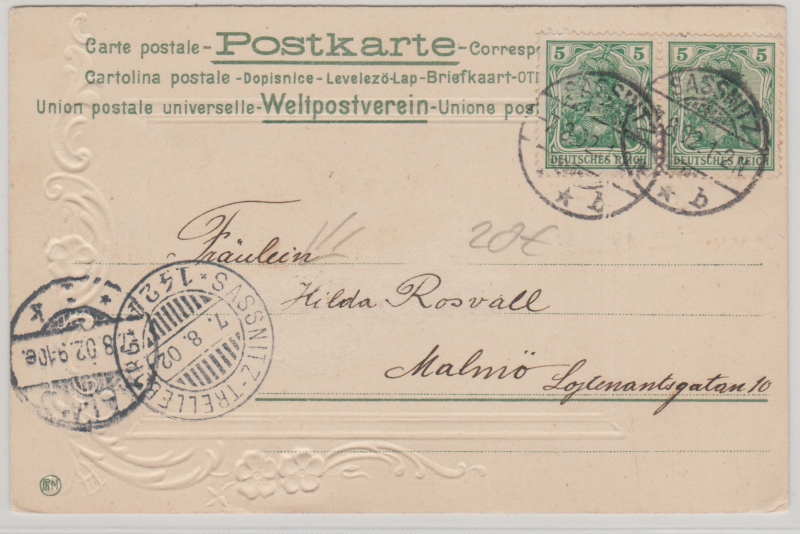 Carte postale - Postkarte - Corresp
Cartolina postale - Dopisnice - Levelező-Lap - Briefkaart - OTI
Union postale universelle - Weltpostverein - Unione pos
5 5
5 5
DEUTSCHES REICH
DEUTSCHES REICH
SASSNITZ
* b
SASSNITZ
* b
20€
Fräulein
Hilda Rosvall
Malmö Lojtenantsgatan 10
SASSNITZ-TRELLEBORG * 142
7. 8. 02
7. 8 02. 9-10